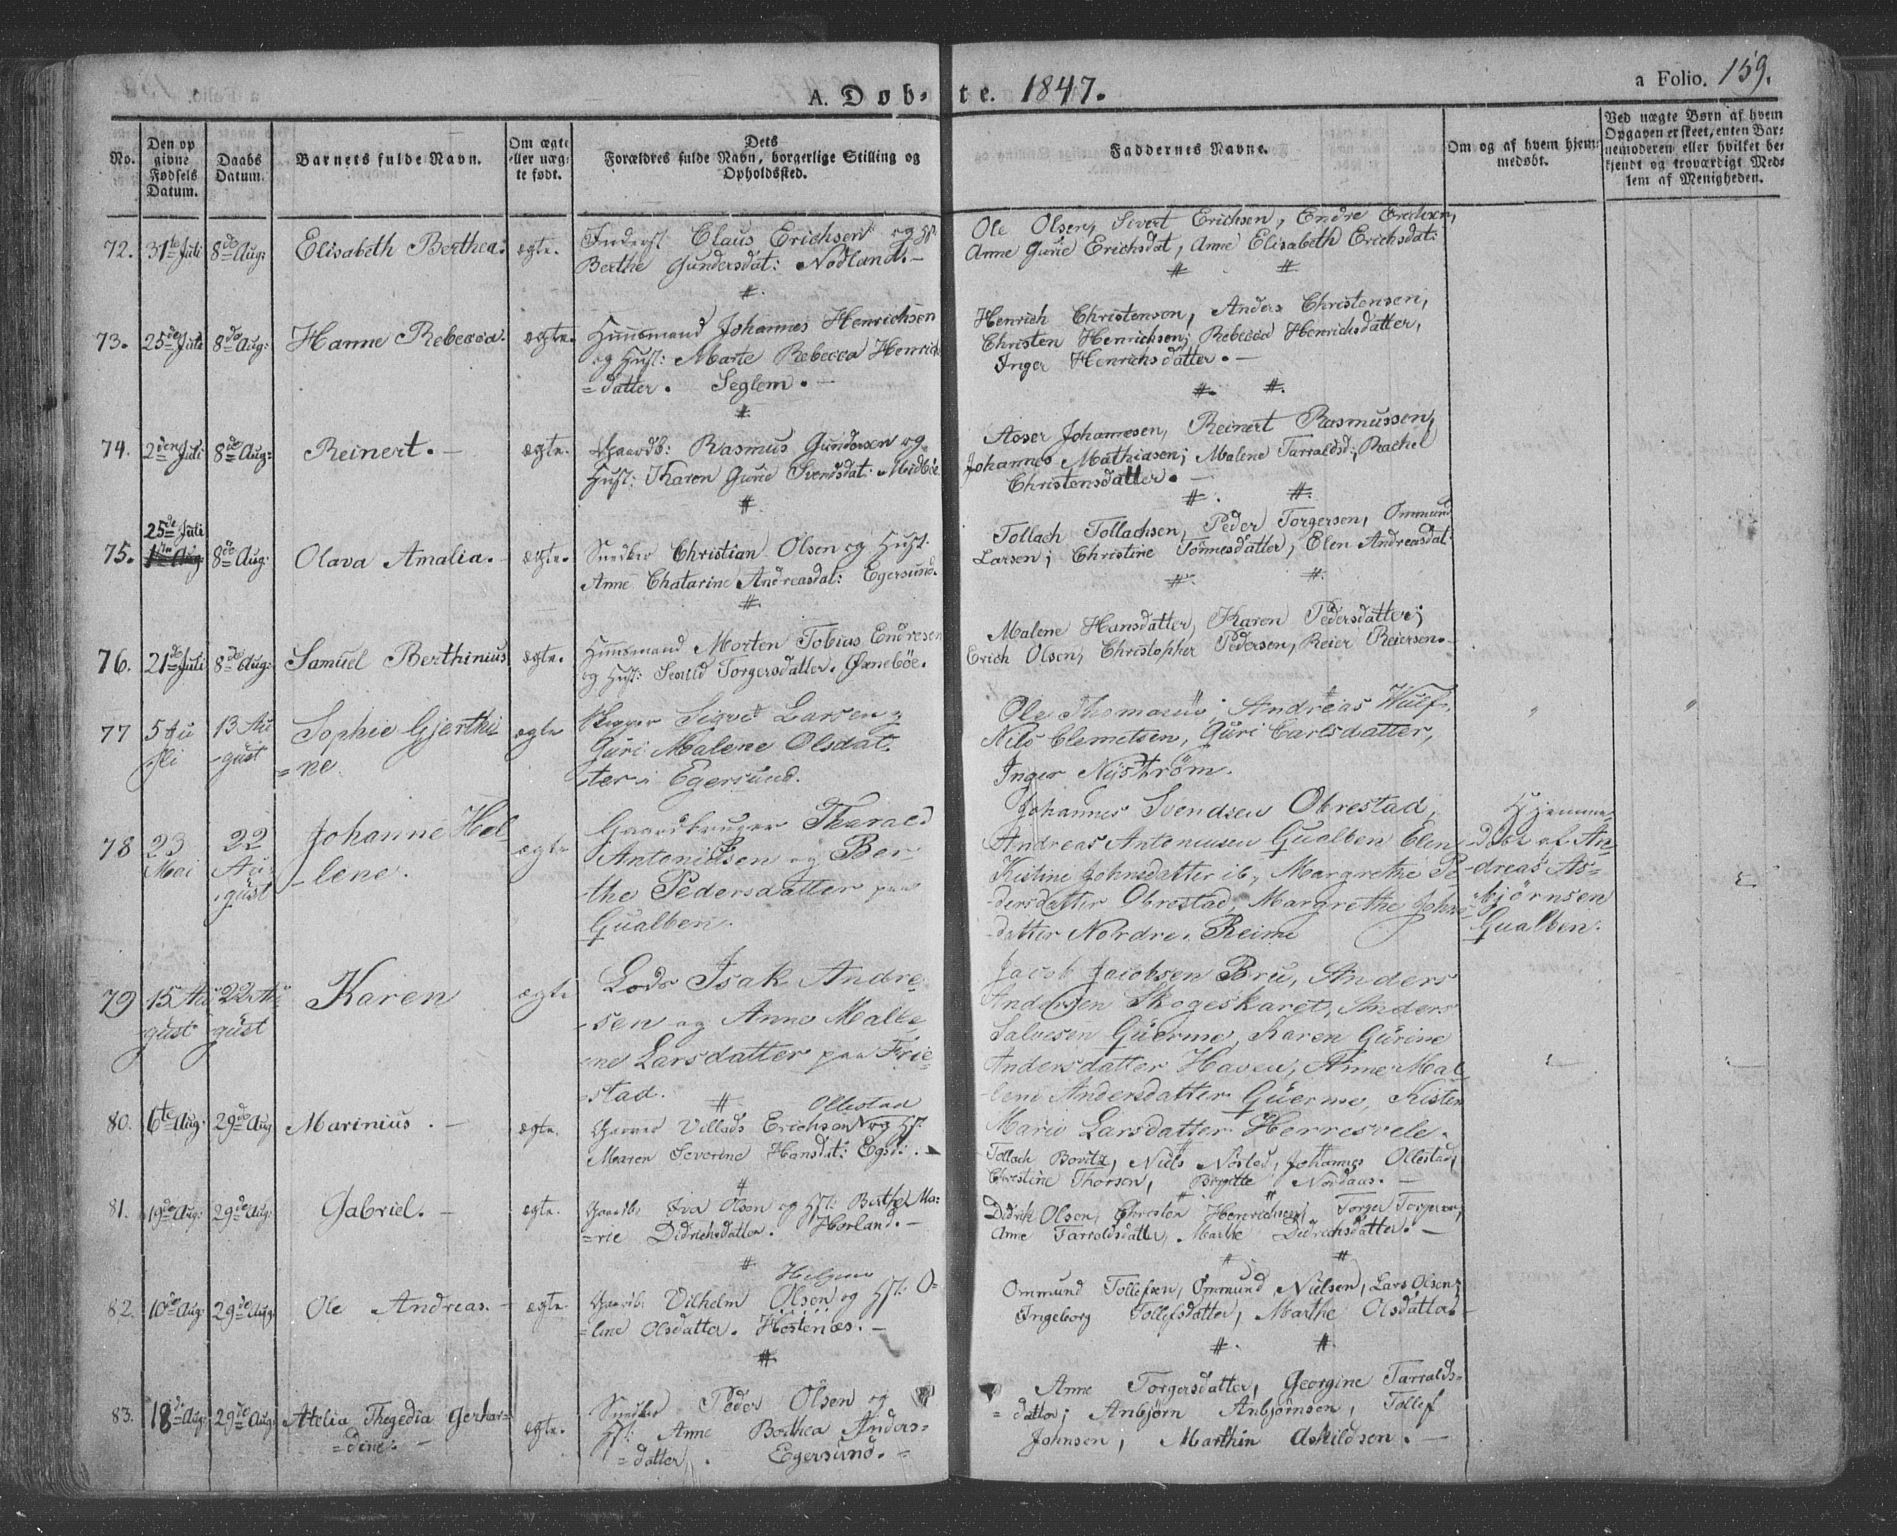 A. Døb- te. 1847.
a Folio. 159.
No.
Den op
givne
Fødsels
Datum.
Daabs
Datum.
Barnets fulde Navn.
Om ægte
eller uæg-
te født.
Dets
Forældres fulde Navn, borgerlige Stilling og
Opholdssted.
Faddernes Navne.
Om og af hvem hjem-
medøbt.
Ved uægte Børn af hvem
Opgaven er skeet, enten Bar-
nemoderen eller hvilket be-
kjendt og troværdigt Med-
lem af Menigheden.
72. 31te Juli 8de Aug: Elisabeth Berthea. ægte.
Inderst Claus Erichsen og Hst:
Berthe Gundersdat: Nodland. -
Ole Olsen, Sivert Erichsen, Endre Erichsen,
Anne Gurie Erichsdat, Anne Elisabeth Erichsdat:
73. 25de Juli 8de Aug: Hanne Rebecca. ægte.
Huusmand Johannes Henrichsen
og Hust: Marte Rebecca Henrichs
=datter. Seglem. -
Henrich Christensen, Anders Christensen,
Christen Henrichsen; Rebecca Henrichsdatter,
Inger Henrichsdatter. -
74. 2den Juli 8de Aug: Reinert. - ægte.
Gaardb: Rasmus Gundersen og
Hust: Karen Gurie Svendsdat: Midbøe
Asser Johannesen, Reinert Rasmussen,
Johannes Mathiasen; Malene Tarraldsd:, Rachel
Christensdatter. -
75. 25de Juli 8de Aug: Olava Amalia. - ægte.
Snedker Christian Olsen og Hust:
Anne Chatarine Andreasdat: Egersund.
Tollach Tollachsen, Peder Torgersen, Ommund
Larsen; Christine Tönnesdatter, Elen Andreasdat:
76. 21de Juli 8de Aug: Samuel Berthinius ægte.
Huusmand Morten Tobias Endresen
og Hust: Torgersdatter.
Malene Hansdatter, Karen Pedersdatter;
Erich Olsen, Christopher Pedersen, Reier Reiersen. -
77 5 Ju
li
13 Au
gust
Sophie Gjerthi
=ne.
ægte
Sigvet Larsen og
Guri Malene Olsdat
ter i Egersund.
Ole Thomasen; Andreas Wulf,
Nils Clemetsen, Guri Carlsdatter,
Inger Nyström.
78 23
Mai
22
Au
gust
Johanne Hel-
-lene.
ægte
Gaardbruger Tharald
Antonissen og Ber-
the Pedersdatter paa
Gualben.
Johannes Svendsen Obrestad,
Andreas Gualben Elen
Kistine Johnsdatter ib, Margrethe Pe-
dersdatter Obrestad, Margrethe Johns-
datter Nordre. Reime
Hjemme-
døbt af An-
dreas As-
bjørnsen
Gualben.
79 15 Au
gust
22 Au
gust
Karen
ægte
Lods Isak Andre-
sen og Anne Malle
ne Larsdatter paa Frie-
stad.
Jacob Jacobsen Bru, Anders
Andersen Skogeskaret, Anders
Salvesen Guerme, Karen Gurine
Andersdatter Haven, Anne Mal
lene Andersdatter Guerme, Kisten
Marie Larsdatter Herresvele.
80. 6te Aug: 29de Aug Marinius. - ægte.
Ollestad
Villads Erichsen og Hst:
Maren Severine Hansdat: Egsd:
Tollach Bovitz, Niels Nösted, Johannes Ollestad,
Christine Thorsen, Birgitte Nordaas. -
81. 19de Aug: 29de Aug: Gabriel. - ægte.
Gaardb: Iva Olsen og Hst: Berthe Ma-
=rie Didrichsdatter. Horland. -
Didrik Olsen, Christen Henrichsen, Torger Torgersen,
Anne Tarraldsdatter, Marthe Didrichsdatter. -
82. 10de Aug: 29de Aug. Ole Andreas. - ægte.
Gaardb: Vilhelm Olsen og Hst: O-
=line Olsdatter. Hestenæs. -
Ommund Tollefsen, Ommund Nielsen, Lars Olsen;
Ingeborg Tollefsdatter, Marthe Olsdatter. -
83. 18de Aug: 29de Aug: Atelia Thegedia Gerhar=
=dine: -
ægte.
Snedker Peder Olsen og
Hst: Anne Berthea Anders=
=datter. Egersund. -
Anne Torgersdatter, Georgine Tarralds=
=datter; Anbjørn Anbjørnsen, Tollef
Johnsen, Marthin Askildsen. -